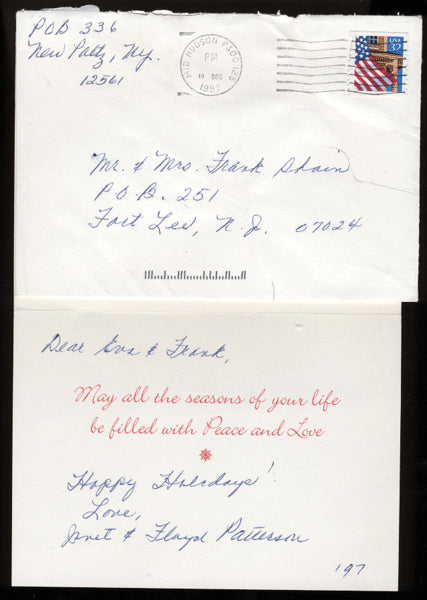 POB 336
New Paltz, Ny.
12561
MID HUDSON P&DC 125
PM
19 DEC
1997
USA
32
Mr. & Mrs. Frank Shain
P.O.B. 251
Fort Lee, N.J. 07024
Dear Eva & Frank,
May all the seasons of your life
be filled with Peace and Love
Happy Holidays!
Love,
Janet & Floyd Patterson
'97